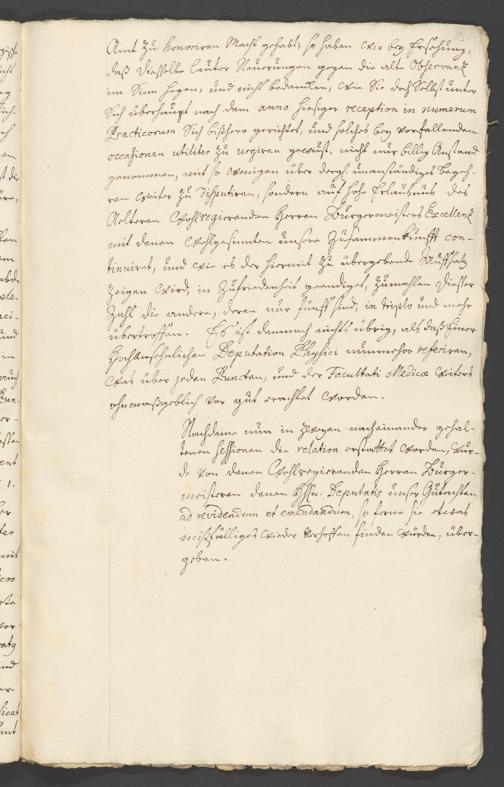 Amt zu honoriren Macht gehabt; so haben wir bey Ersehung,
daß dieselbe lauter Neuerungen gegen die alte Observanz
im Sinn hegen, und nicht bedencken, wie Sie doch Selbst unter
Sich überhaupt nach dem anno hiesiger reception in numerum
Practicorum Sich bißhero gerichtet, und solches bey vorfallenden
occasionen utiliter zu urgiren gewust, nicht nur billig Anstand
genommen, mit so wenigen über dergl. unanständiges Begeh-
ren weiter zu disputiren, sondern auf hohe Erlaubnis des
Aelteren Wohlregierenden Herren Burgermeisters Excellenz
mit denen Wohlgesinnten unsere Zusammenkunfft con-
tinuiret, und wie es der hiermit zu übergebende Auffsatz
zeigen wird, in Zufriedenheit geendiget, zumahlen dieser
Zahl die andere, deren nur fünff sind, in triplo und mehr
übertroffen. Es ist demnach nichts übrig, als daß Einer
Hochansehnlichen Deputation Physici nunmehro referiren,
was über jeden Puncten, und der Facultati Medicæ weiters
ohnmaßgeblich vor gut erachtet worden.
Nachdeme nun in zweyen nacheinander gehal-
tenen Sessionen die relation erstattet worden, wur-
de von denen Wohlregierenden Herren Burger-
meisteren denen Hhn. Deputatis unser Gutachten
ad revidendum et emendandum, so ferne sie etwas
mißfälliges wieder Verhoffen finden würden, über-
geben.